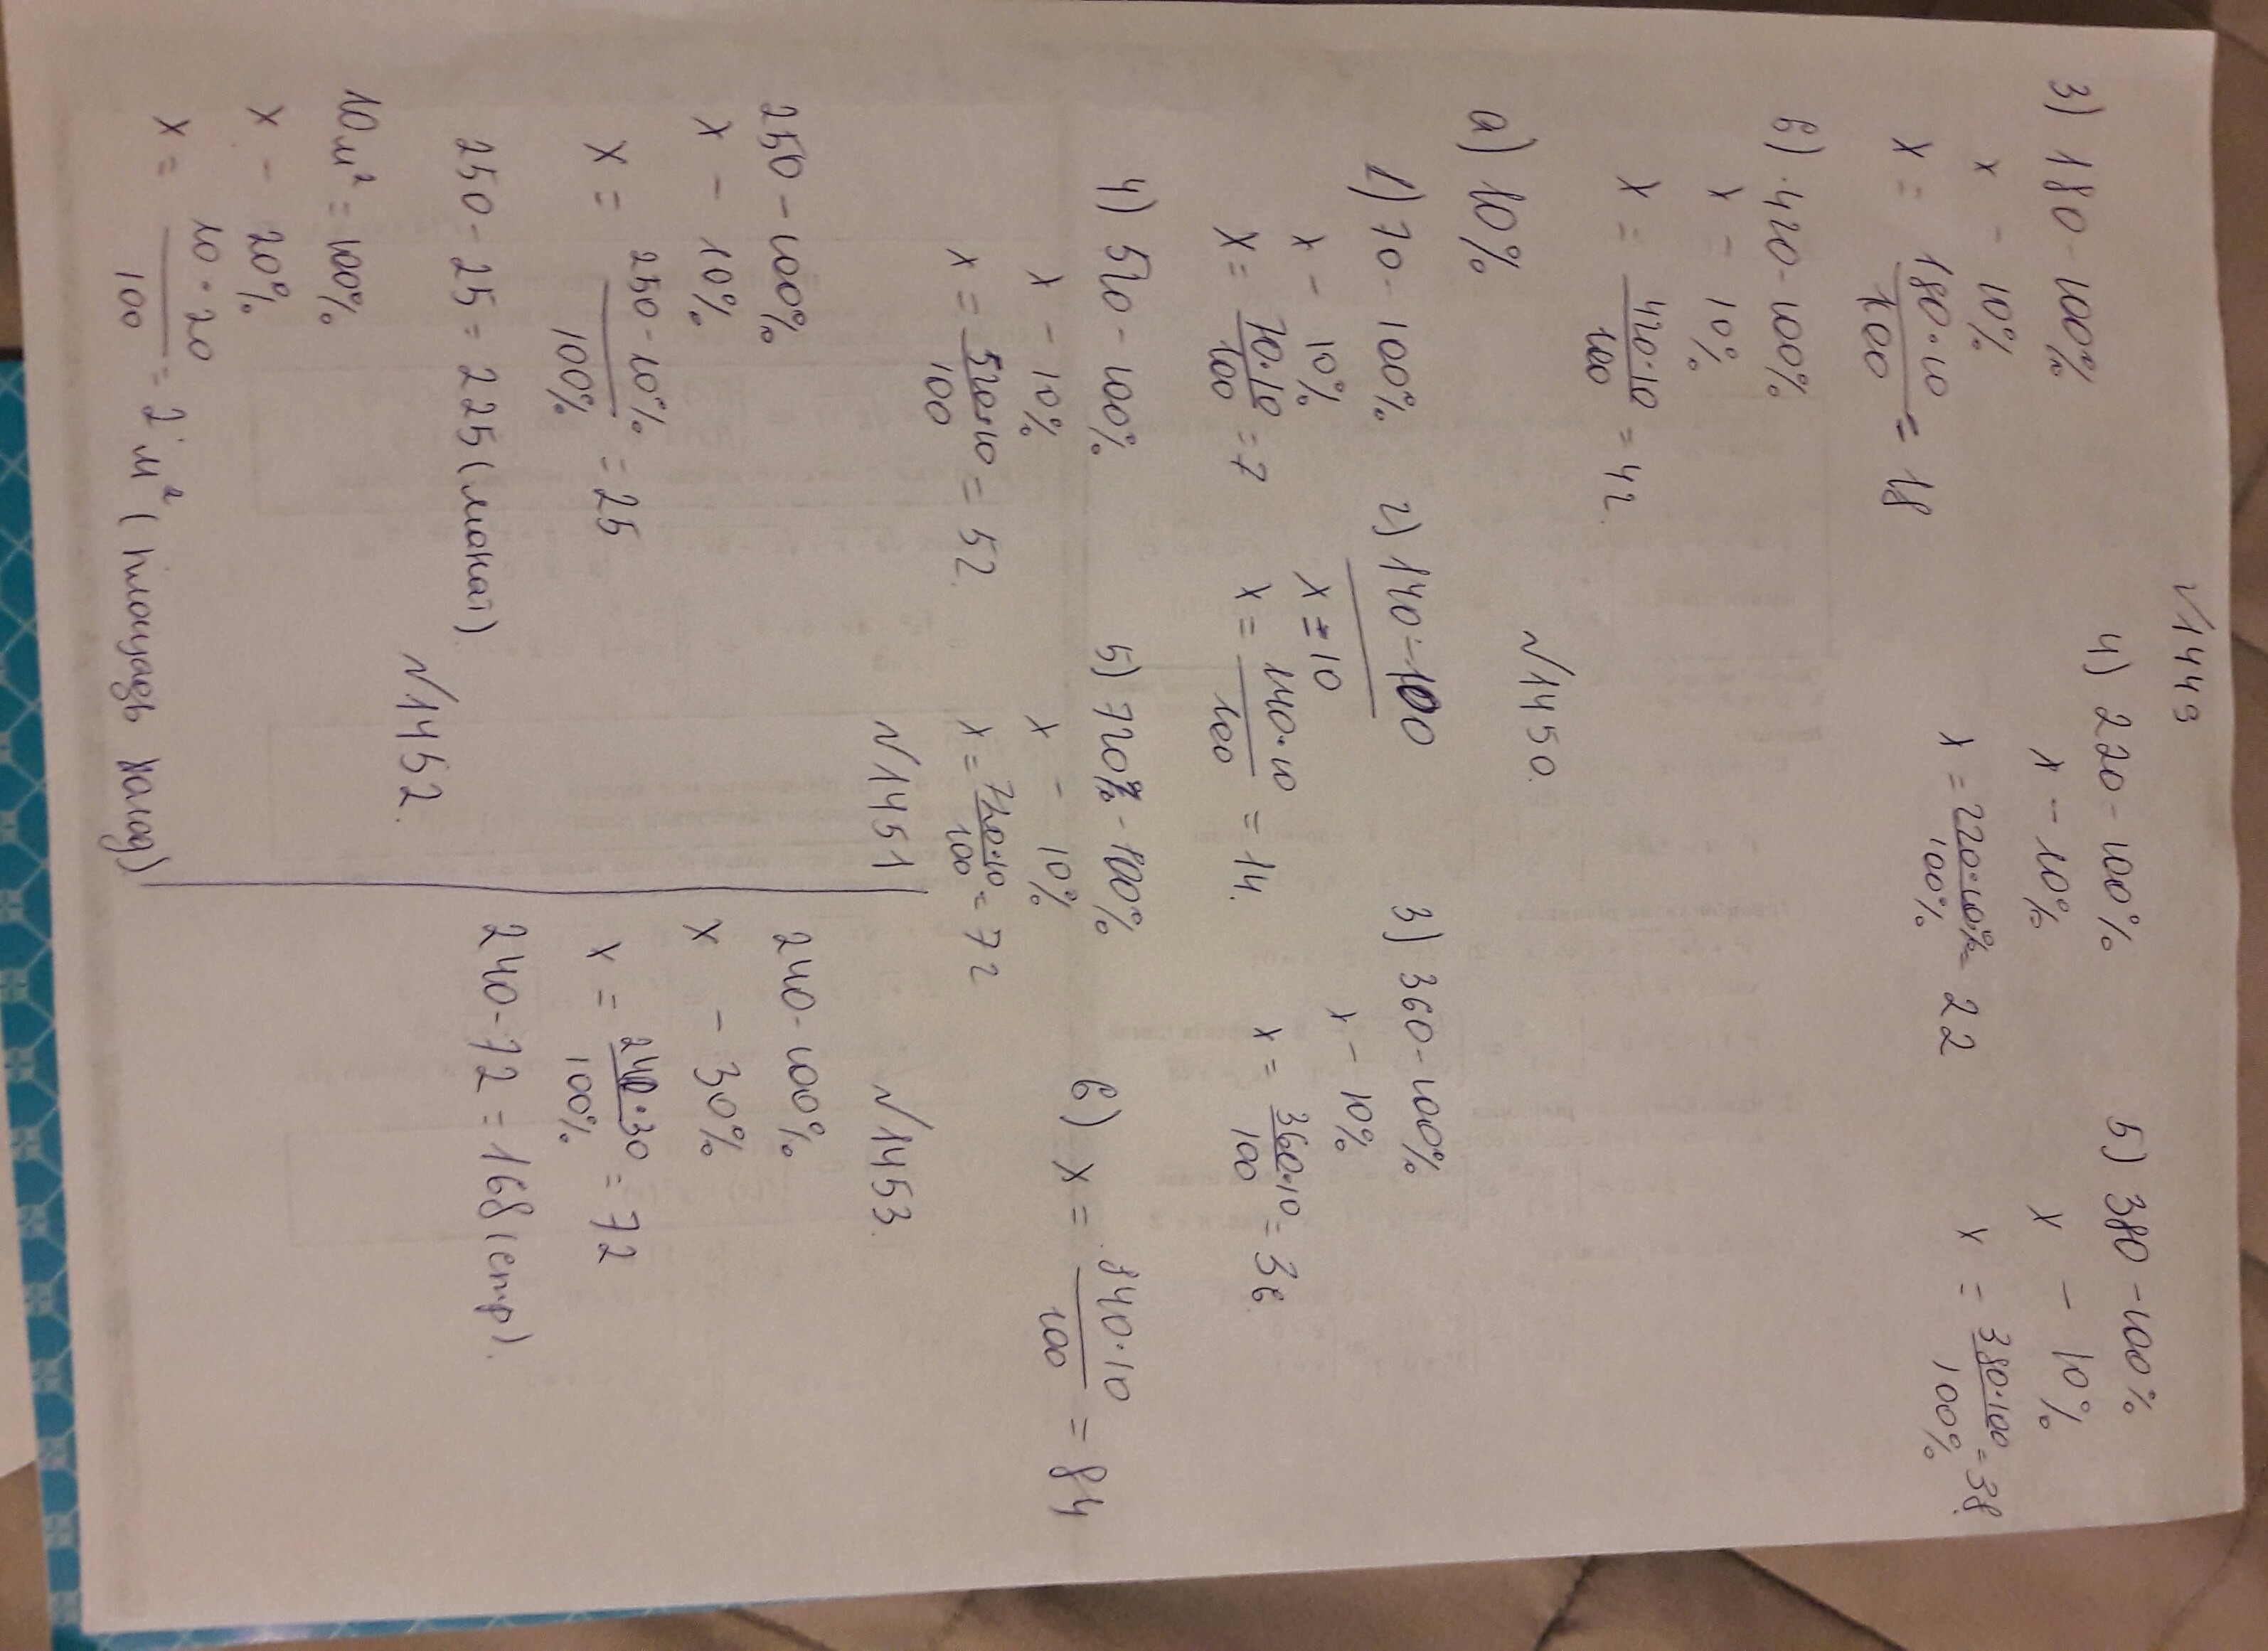 N1449
3) 180 - 100%
x - 10%
x = 180·10/100 = 18
4) 220 - 100%
x - 10%
x = 220·10%/100% = 22
5) 380 - 100%
x - 10%
x = 380·100/100% = 38
6) 420 - 100%
x - 10%
x = 420·10/100 = 42.
N1450.
а) 10%
1) 70 - 100%
x - 10%
x = 70·10/100 = 7
2) 140 - 100
x = 10
x = 140·10/100 = 14.
3) 360 - 100%
x - 10%
x = 360·10/100 = 36.
4) 520 - 100%
x - 10%
x = 520·10/100 = 52.
5) 720% - 100%
x - 10%
x = 720·10/100 = 72
6) x = 840·10/100 = 84
N1451
250 - 100%
x - 10%
x = 250·10%/100% = 25
250 - 25 = 225 (
N1452.
10м² = 100%
x - 20%
x = 10·20/100 = 2м² (площадь
N1453.
240 - 100%
x - 30%
x = 240·30/100% = 72
240 - 72 = 168 (стр).